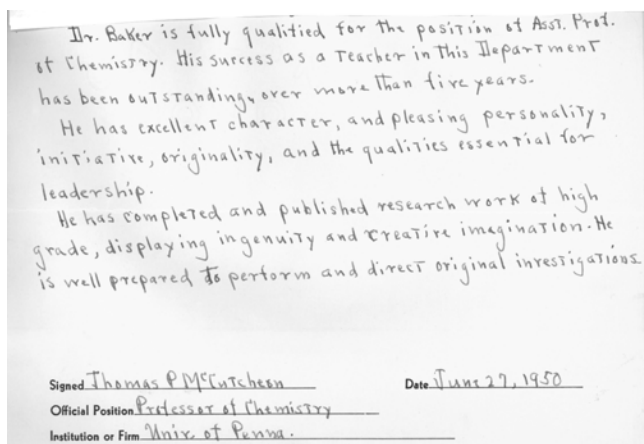 Dr. Baker is fully qualified for the position of Asst. Prof.
of Chemistry. His success as a Teacher in this Department
has been outstanding, over more than five years.
He has excellent character, and pleasing personality,
initiative, originality, and the qualities essential for
leadership.
He has completed and published research work of high
grade, displaying ingenuity and creative imagination. He
is well prepared to perform and direct original investigations.
Signed Thomas P McCutcheon Date June 27, 1950
Official Position Professor of Chemistry
Institution or Firm Univ. of Penna.